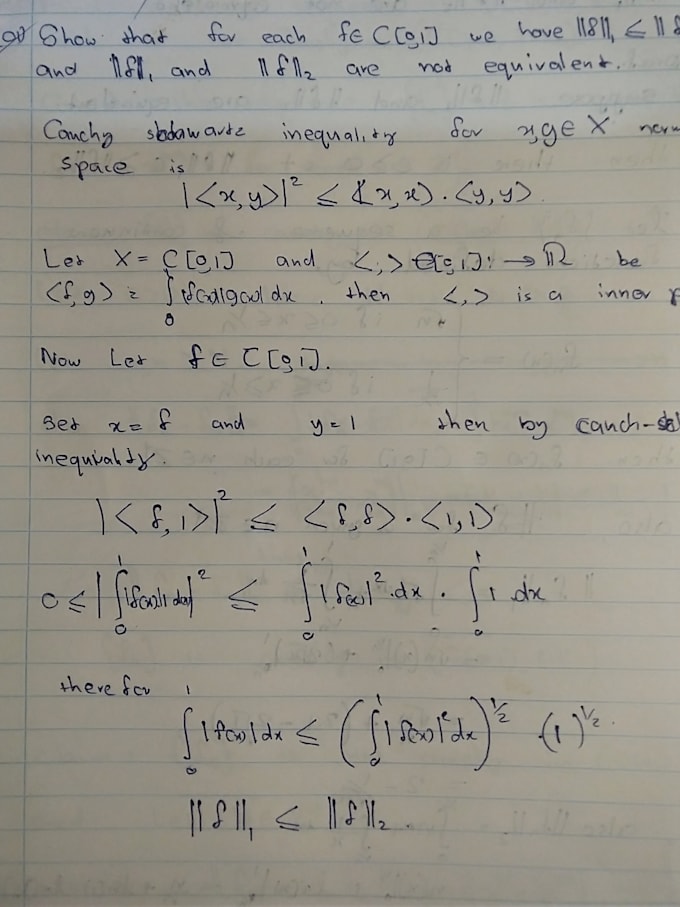 Show that for each f∈ C[0,1] we have ||f||₁ ≤ ||f
and ||f||₁ and ||f||₂ are not equivalent.
Cauchy inequality for x,y∈ X norm
space is
|<x,y>|² ≤ <x,x> . <y,y>
Let X = C[0,1] and <,> : → ℝ be
<f,g> = ∫₀¹ |f(x)||g(x)| dx . then <,> is a inner p
Now Let f ∈ C[0,1].
Set x = f and y = 1 then by cauch-
|<f,1>|² ≤ <f,f> . <1,1>
0 ≤ |∫₀¹ |f(x)| dx|² ≤ ∫₀¹ |f(x)|² dx . ∫₀¹ 1 dx
there for
∫₀¹ |f(x)| dx ≤ (∫₀¹ |f(x)|² dx)^½ (1)^½.
||f||₁ ≤ ||f||₂.